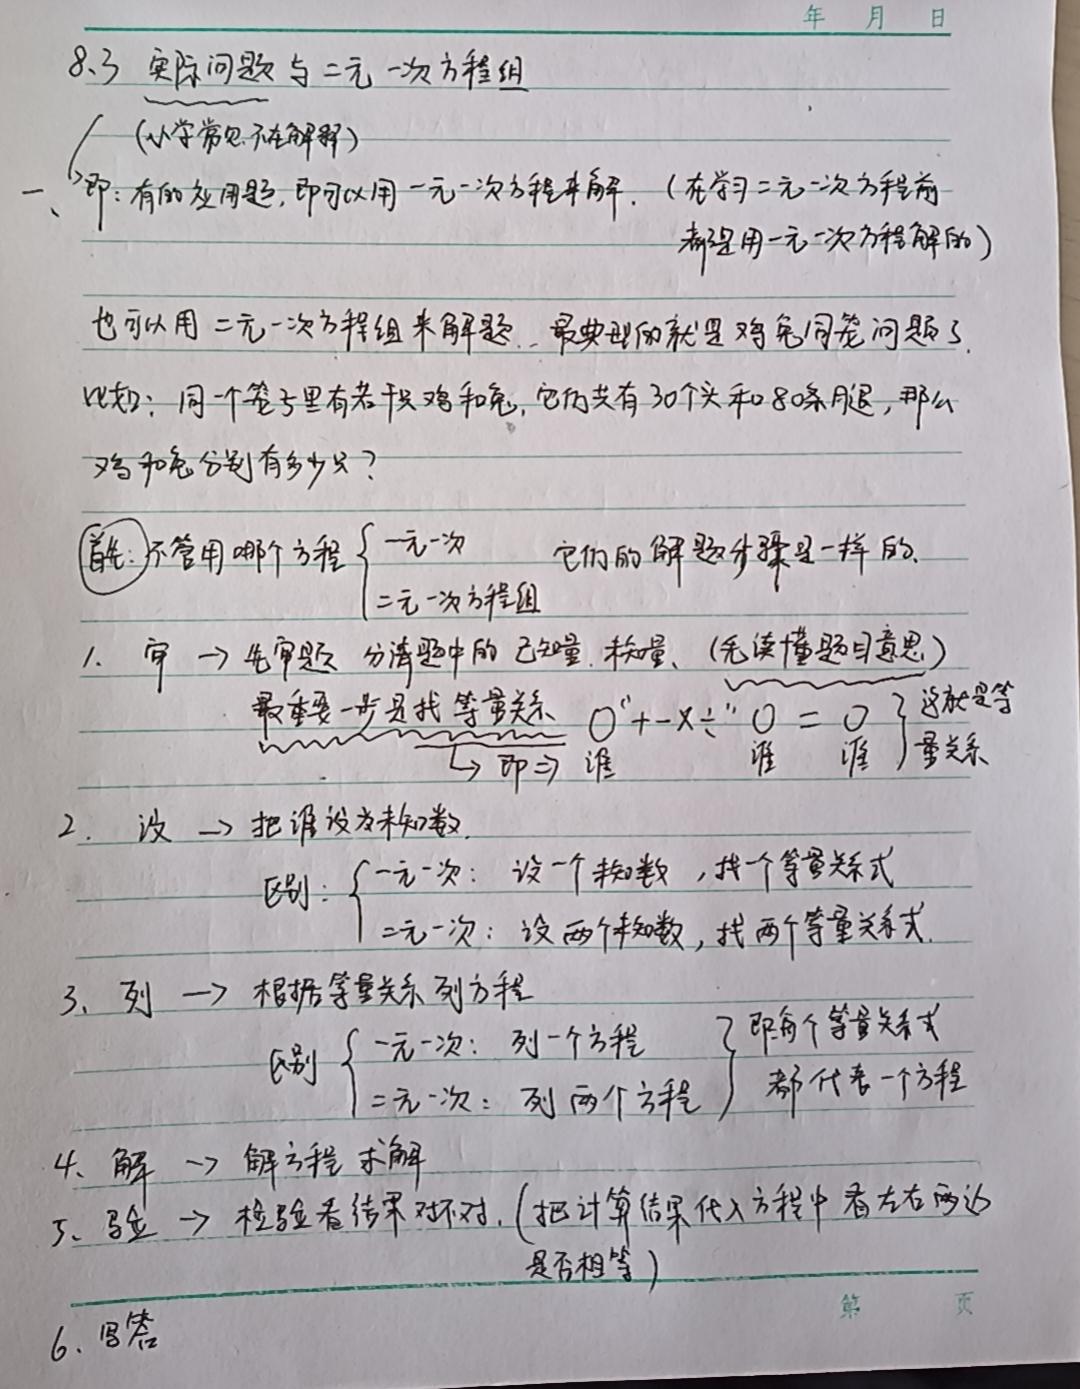 年 月 日
8.3 实际问题与二元一次方程组
(小学常见不在解释)
一、即:有的应用题,即可以用一元一次方程来解.(在学习二元一次方程前
都是用一元一次方程解的)
也可以用二元一次方程组来解题..最典型的就是鸡兔同笼问题了.
比如:同一个笼子里有若干只鸡和兔,它们共有30个头和80条腿,那么
鸡和兔分别有多少只?
首先:不管用哪个方程{一元一次 它们的解题步骤是一样的.
二元一次方程组
1. 审 → 先审题 分清题中的已知量.未知量、(先读懂题目意思)
最重要一步是找等量关系 O"+-×÷"O=O}这就是等
↳即⇒ 谁 谁 谁 量关系
2. 设 → 把谁设为未知数.
区别:{一元一次: 设一个未知数,找一个等量关系式
二元一次: 设两个未知数,找两个等量关系式.
3、列 → 根据等量关系列方程
区别{一元一次: 列一个方程 }即每个等量关系式
二元一次: 列两个方程 都代表一个方程
4、解 → 解方程求解
5、验 → 检验看结果对不对.(把计算结果代入方程中看左右两边
是否相等)
第 页
6、写答